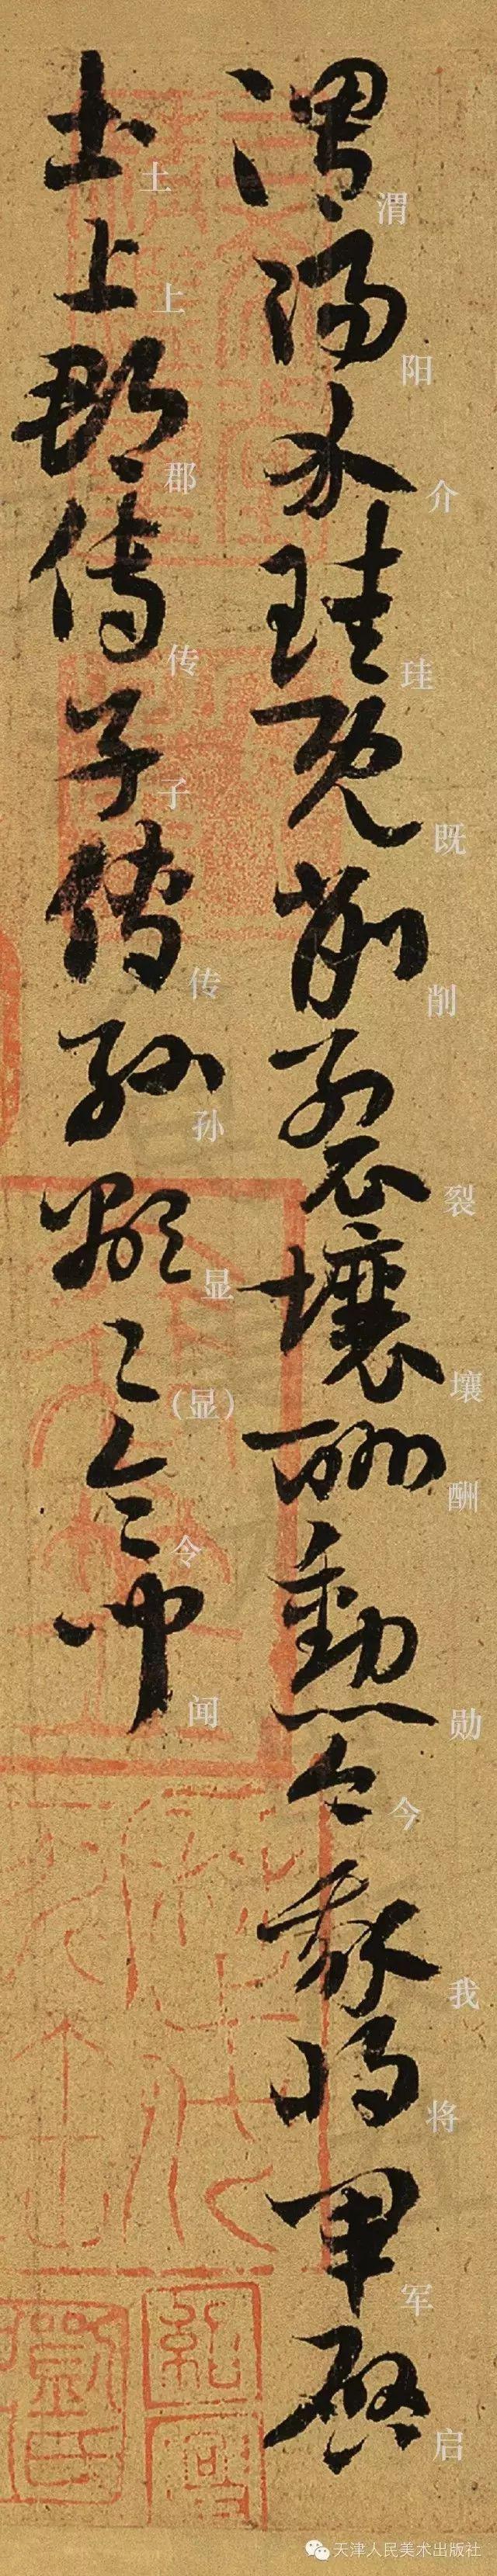 渭阳介珪既削裂壤酬勋今我将军启
土上郡传子传孙显(显)令闻
天津人民美术出版社